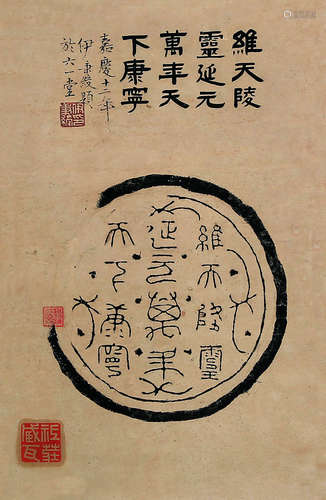 維天降
靈延元
萬年天
下康寧
嘉慶十二年
伊秉綬題
於六一堂
維天降靈
延元萬年
天下康寧
藏瓦